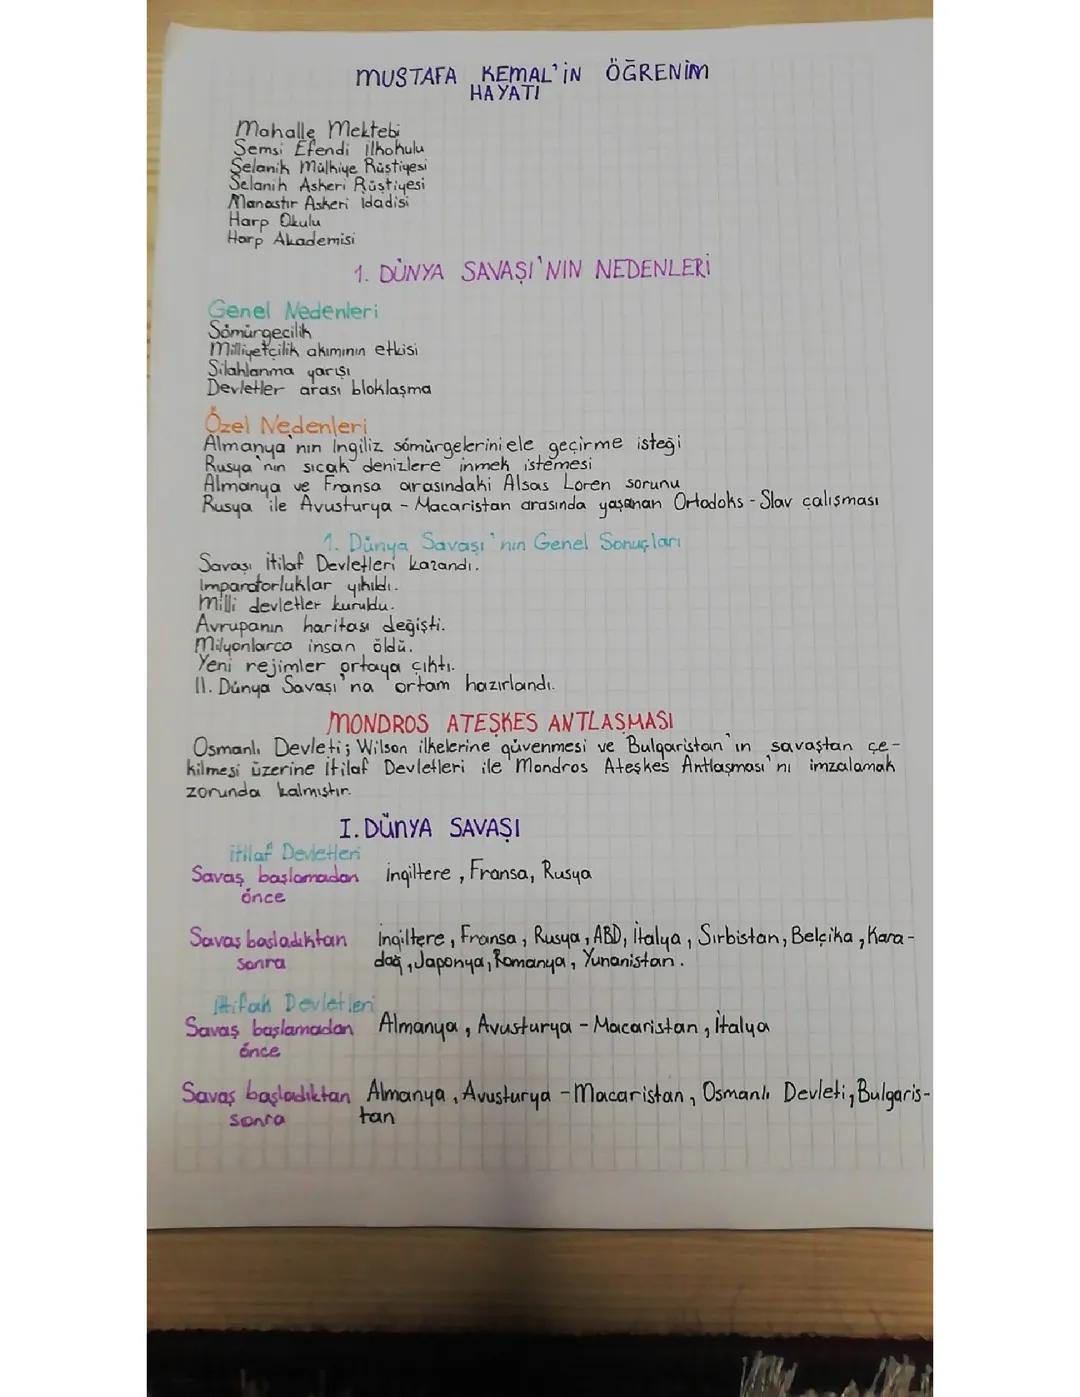 MUSTAFA KEMAL'İN ÖĞRENİM
HAYATI
Mahalle Mektebi
Şemsi Efendi İlkokulu
Selanik Mülkiye Rüştiyesi
Selanik Askeri Rüştiyesi
Manastır Askeri İdadisi
Harp Okulu
Harp Akademisi
1. DÜNYA SAVAŞI'NIN NEDENLERİ
Genel Nedenleri
Sömürgecilik
Milliyetçilik akımının etkisi
Silahlanma yarışı
Devletler arası bloklaşma
Özel Nedenleri
Almanya'nın İngiliz sömürgelerini ele geçirme isteği
Rusya'nın sıcak denizlere inmek istemesi
Almanya ve Fransa arasındaki Alsas Loren sorunu
Rusya ile Avusturya - Macaristan arasında yaşanan Ortodoks - Slav çalışması
1. Dünya Savaşı'nın Genel Sonuçları
Savaşı İtilaf Devletleri kazandı.
İmparatorluklar yıkıldı.
Milli devletler kuruldu.
Avrupanın haritası değişti.
Milyonlarca insan öldü.
Yeni rejimler ortaya çıktı.
II. Dünya Savaşı'na ortam hazırlandı.
MONDROS ATEŞKES ANTLAŞMASI
Osmanlı Devleti; Wilson ilkelerine güvenmesi ve Bulgaristan'ın savaştan çe-
kilmesi üzerine İtilaf Devletleri ile Mondros Ateşkes Antlaşması'nı imzalamak
zorunda kalmıştır.
I. DÜNYA SAVAŞI
İtilaf Devletleri
Savaş başlamadan İngiltere, Fransa, Rusya
önce
Savaş başladıktan İngiltere, Fransa, Rusya, ABD, İtalya, Sırbistan, Belçika, Kara-
sonra dağ, Japonya, Romanya, Yunanistan.
İttifak Devletleri
Savaş başlamadan Almanya, Avusturya - Macaristan, İtalya
önce
Savaş başladıktan Almanya, Avusturya - Macaristan, Osmanlı Devleti, Bulgaris-
sonra tan